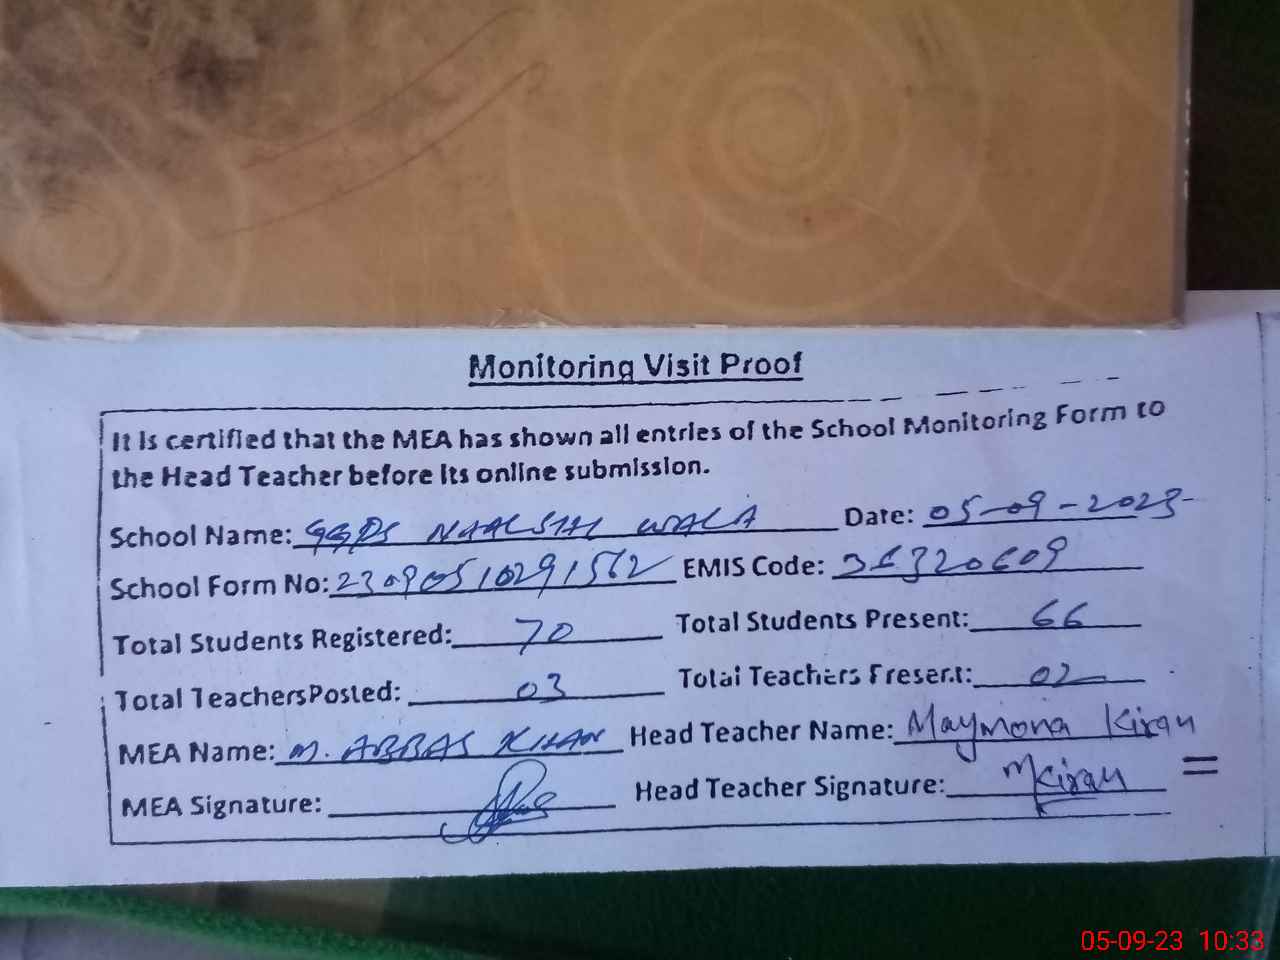 Monitoring Visit Proof
It is certified that the MEA has shown all entries of the School Monitoring Form to
the Head Teacher before its online submission.
School Name: GGPS WALA Date: 05-09-2023
School Form No: 23090510291562 EMIS Code: 36320609
Total Students Registered: 70 Total Students Present: 66
Total Teachers Posted: 03 Total Teachers Present: 02
MEA Name: M. ABBAS KHAN Head Teacher Name: Maymona Kiran
MEA Signature: Head Teacher Signature: MKiran
05-09-23 10:33